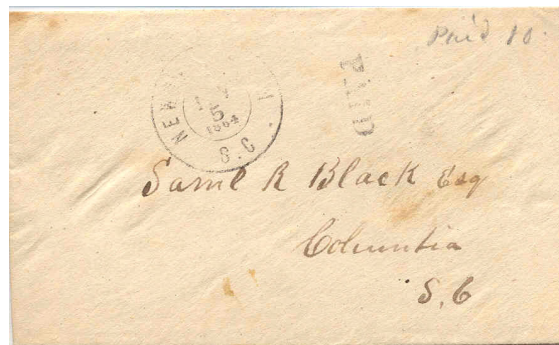 Paid 10
PAID
5
1864
S.C.
Saml R Black Esq
Columbia
S.C